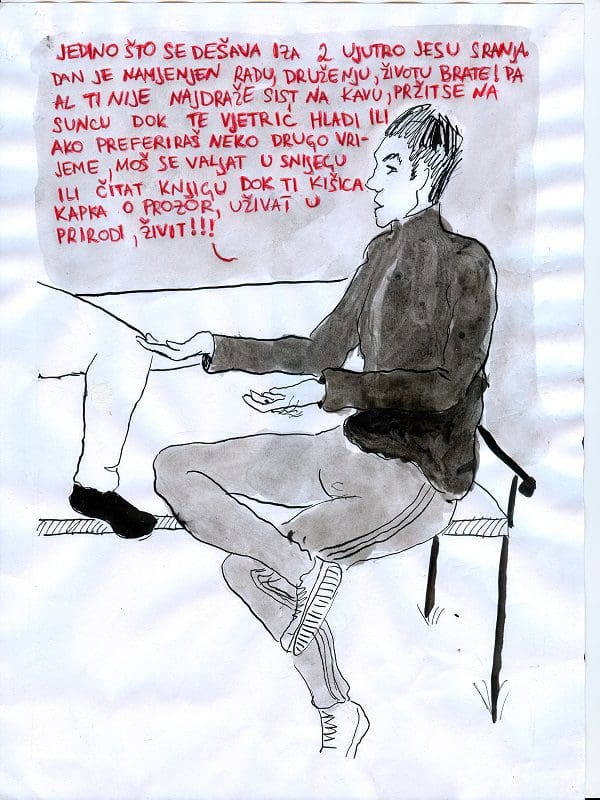 JEDINO ŠTO SE DEŠAVA IZA 2 UJUTRO JESU SRANJA
DAN JE NAMJENJEN RADU, DRUŽENJU, ŽIVOTU BRATE! PA
AL TI NIJE NAJDRAŽE SIST NA KAVU, PRŽIT SE NA
SUNCU DOK TE VJETRIĆ HLADI ILI
AKO PREFERIRAŠ NEKO DRUGO VRI-
JEME, MOŠ SE VALJAT U SNIJEGU
ILI ČITAT KNJIGU DOK TI KIŠICA
KAPKA O PROZOR, UŽIVAT U
PRIRODI, ŽIVIT!!!